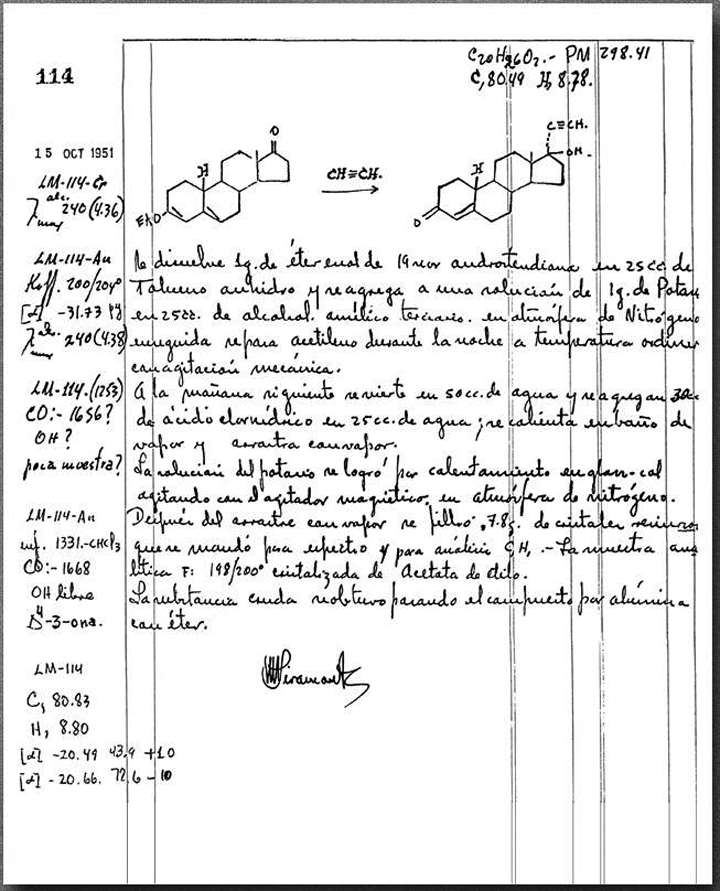 114
C20H26O2.- PM 298.41
C, 80.49 H, 8.78.
15 OCT 1951
LM-114-Cr
λ alc. max 240 (4.36)
H
O
EtO
CH≡CH.
H
C≡CH.
OH.
O
LM-114-An
Koff. 200/204°
[α] -31.73 Py
λ alc. max 240 (4.38)
LM-114.(1253)
CO:- 1656?
OH?
poca muestra?
LM-114-An
inf. 1331.-CHCl3
CO:- 1668
OH libre
Δ4-3-ona.
LM-114
C, 80.83
H, 8.80
[α] -20.49 43.9 +10
[α] -20.66. 72.6 -10
Se disuelve 1g. de éter enol de 19 nor androstendiona en 25cc. de
Tolueno anhidro y se agrega a una solución de 1g. de Potasi
en 25cc. de alcohol amílico terciario. en atmósfera de Nitrógeno
enseguida se pasa acetileno durante la noche a temperatura ordinar
con agitación mecánica.
A la mañana siguiente se vierte en 50cc. de agua y se agregan 30cc
de ácido clorhídrico en 25cc. de agua; se calienta en baño de
vapor y arrastra con vapor.
La solución del potasio se logró por calentamiento en glan-col
agitando con el agitador magnético, en atmósfera de nitrógeno.
Después del arrastre con vapor se filtró, 7.8g. de cristales
que se mandó para espectro y para análisis C,H, .- La muestra ana
lítica F: 198/200° cristalizada de Acetato de etilo.
La substancia cruda se obtuvo pasando el compuesto por alúmina
con éter.
LMiramontes